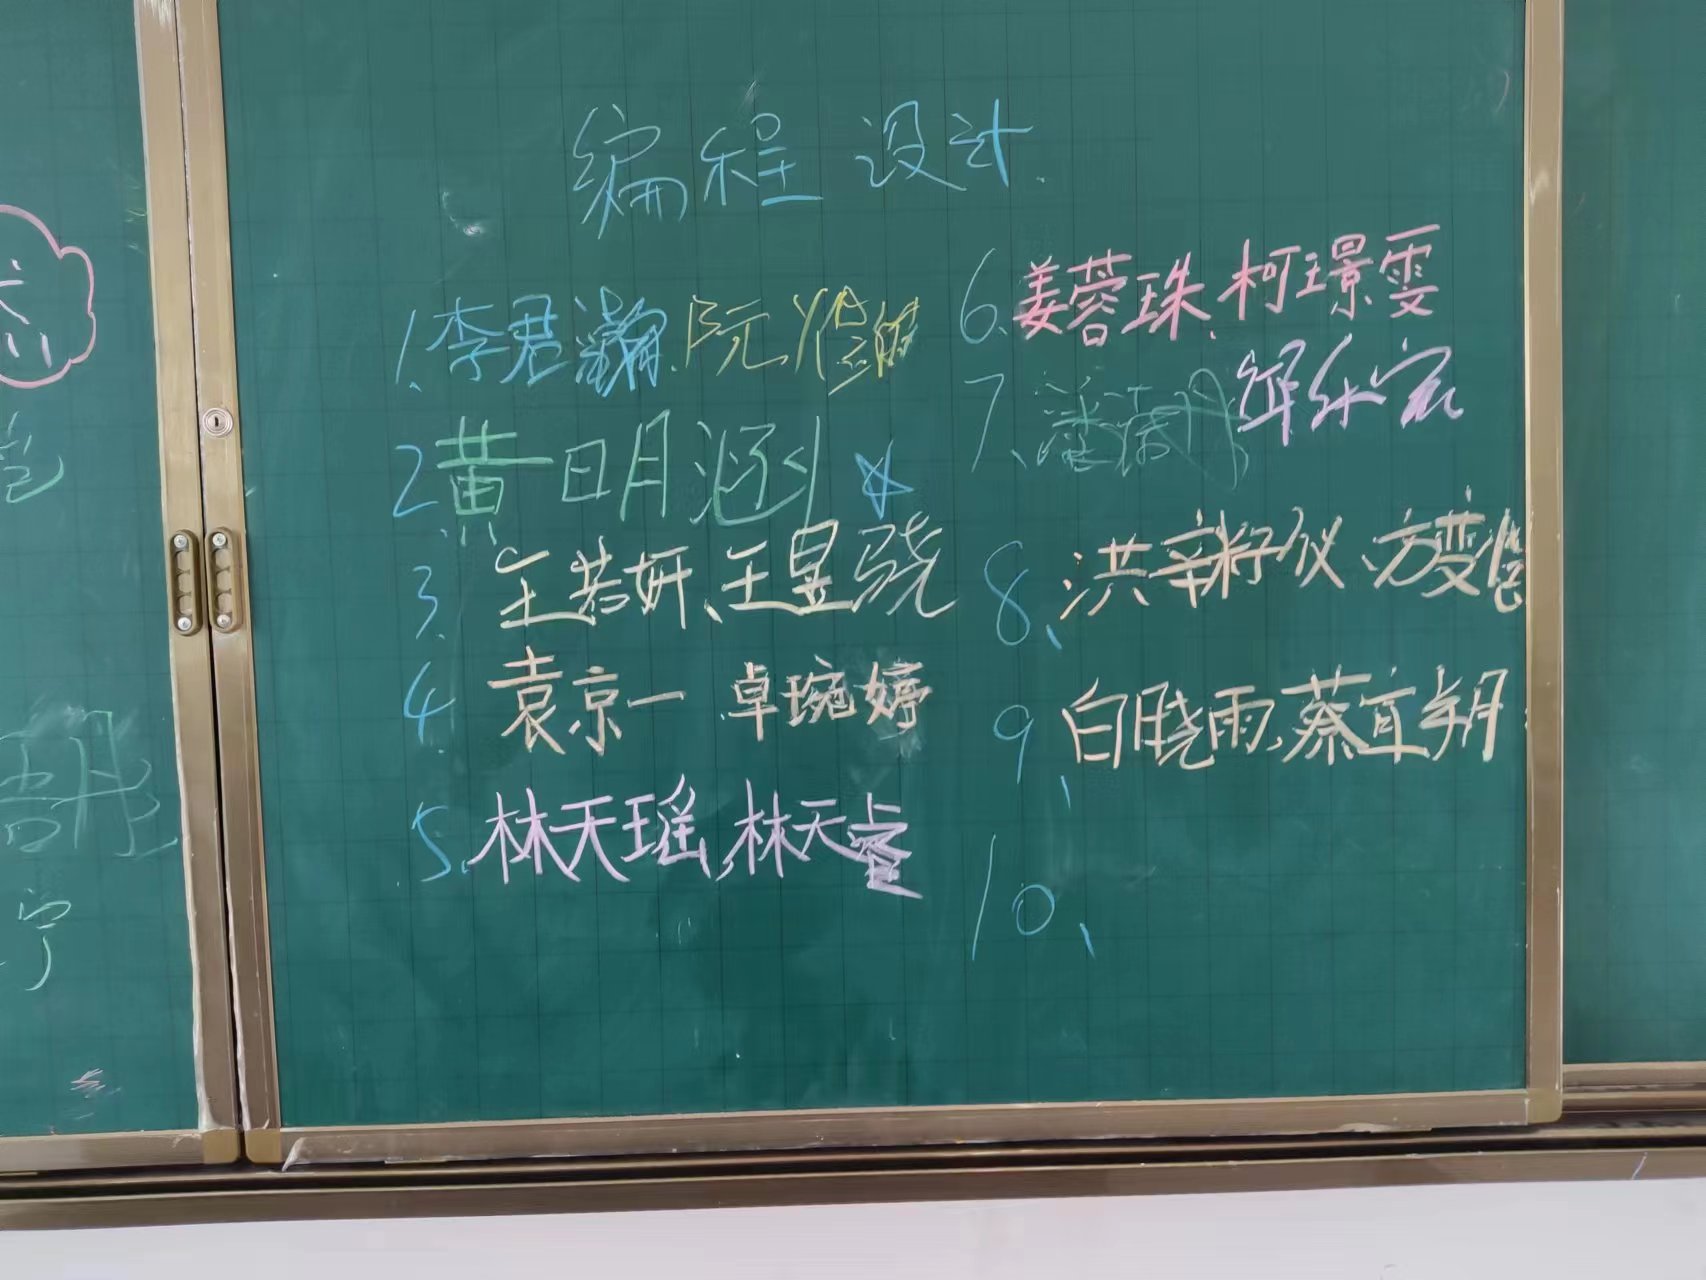 编程设计
1.李君瀚.阮
2黄日月涵
3.王若妍、王昱骁
4.袁京一 卓琬婷
5.林天瑶,林天睿
6.姜蓉珠.柯璟雯
7、潘
8、洪 仪、方
9、白晓雨,蔡宜朔
10、
宁